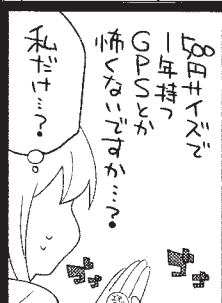 500円サイズで
1年持つ
GPSとか
怖くないですか…?
私だけ…?
ブブ
ブブ